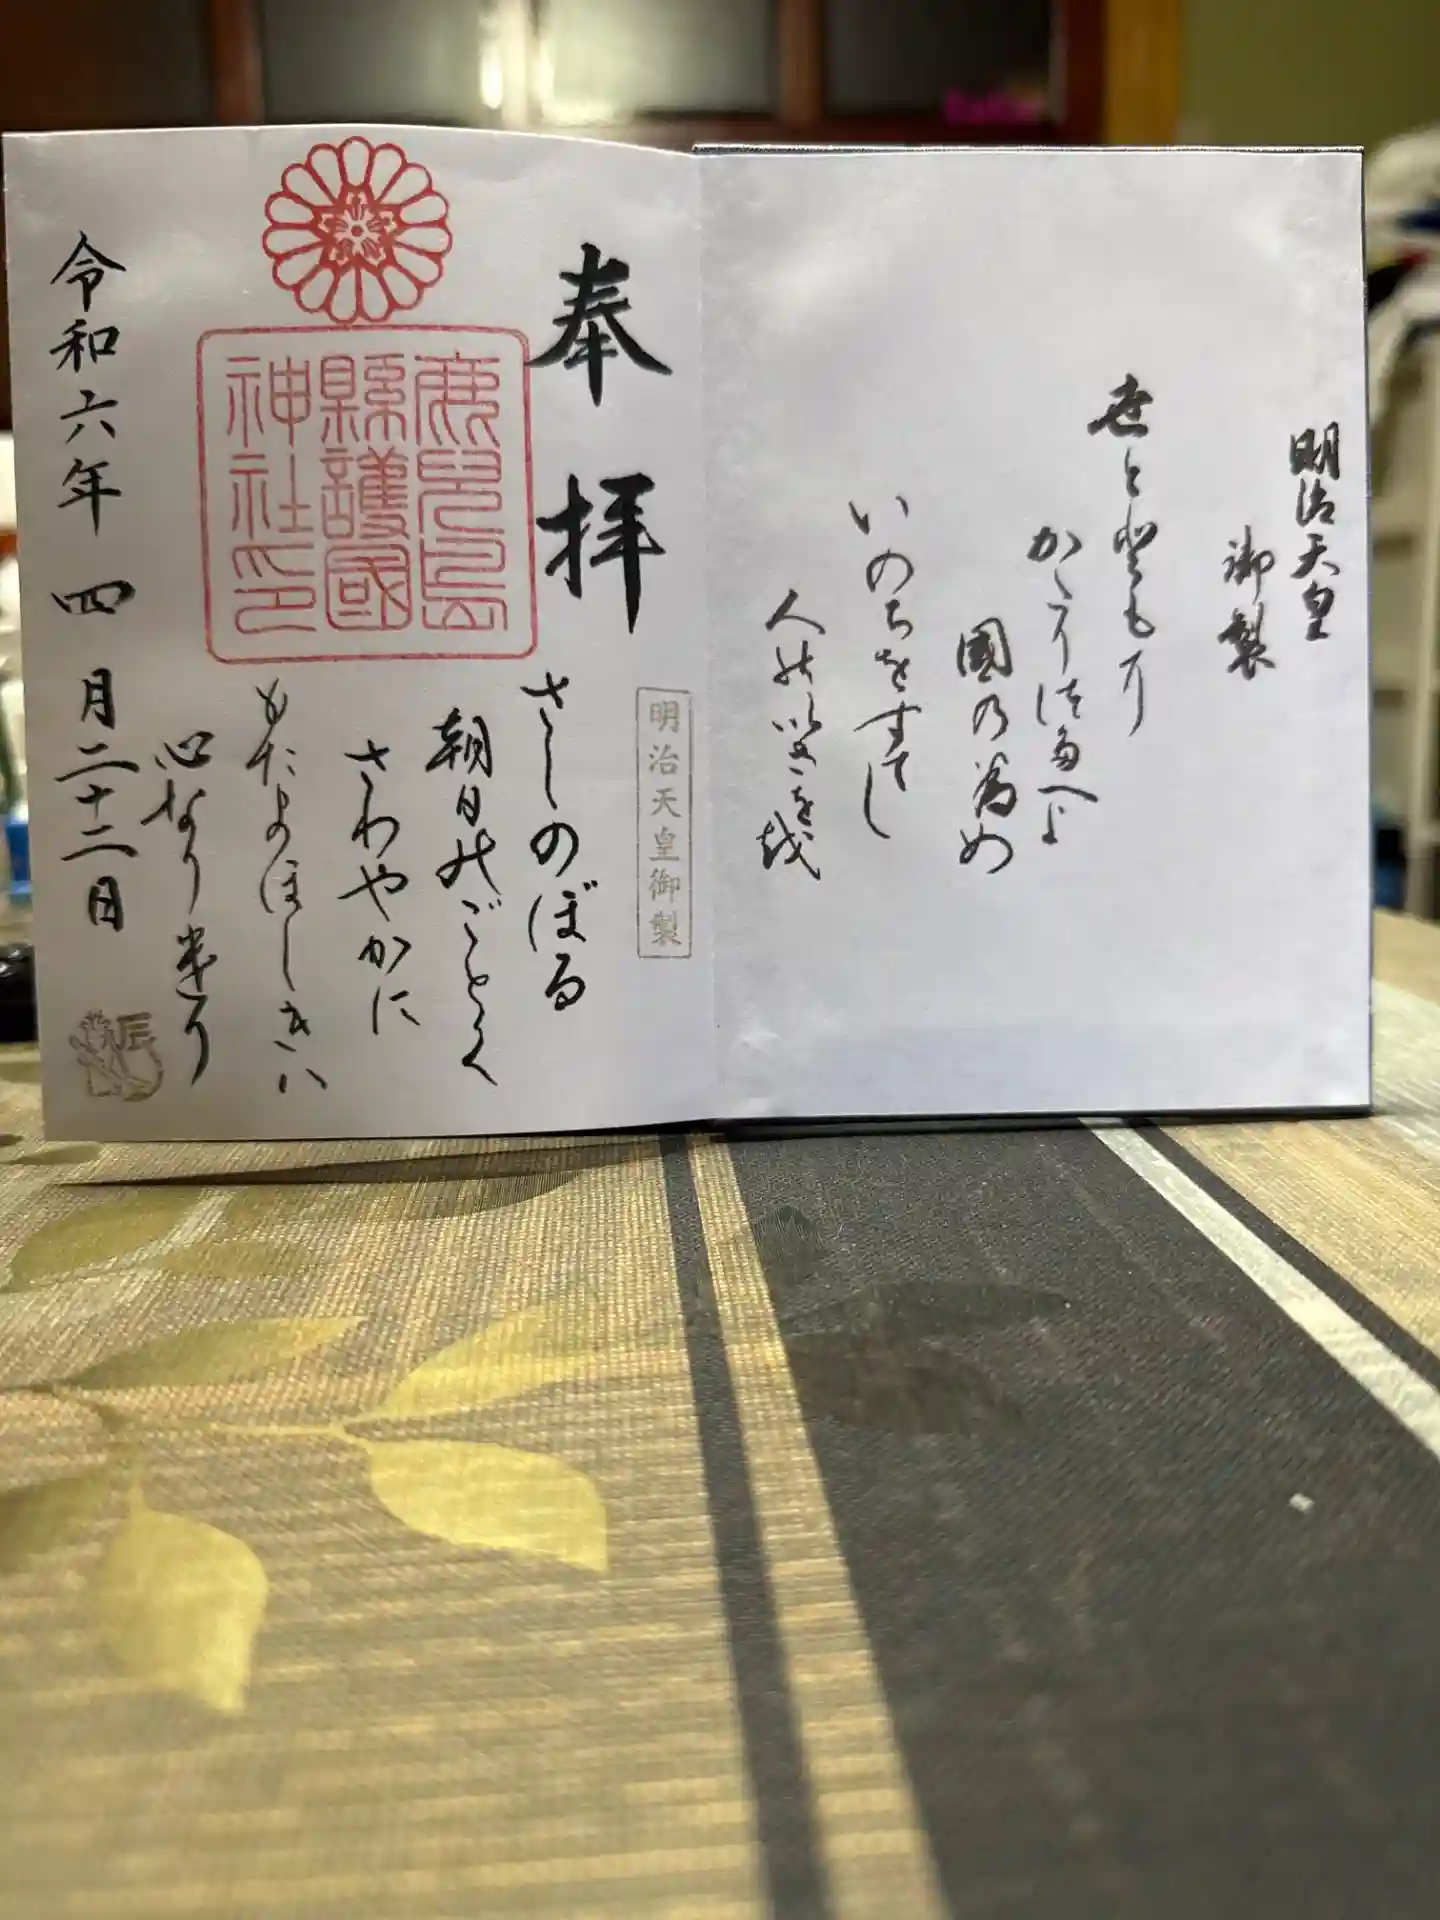 明治天皇
御製
世とともに
語りつたへよ
國の為め
いのちをすてし
人のいさを越
奉拝
明治天皇御製
鹿兒島
縣護國
神社印
さしのぼる
朝日のごとく
さわやかに
もたまほしきハ
心なりけり
令和六年 四月二十二日
辰